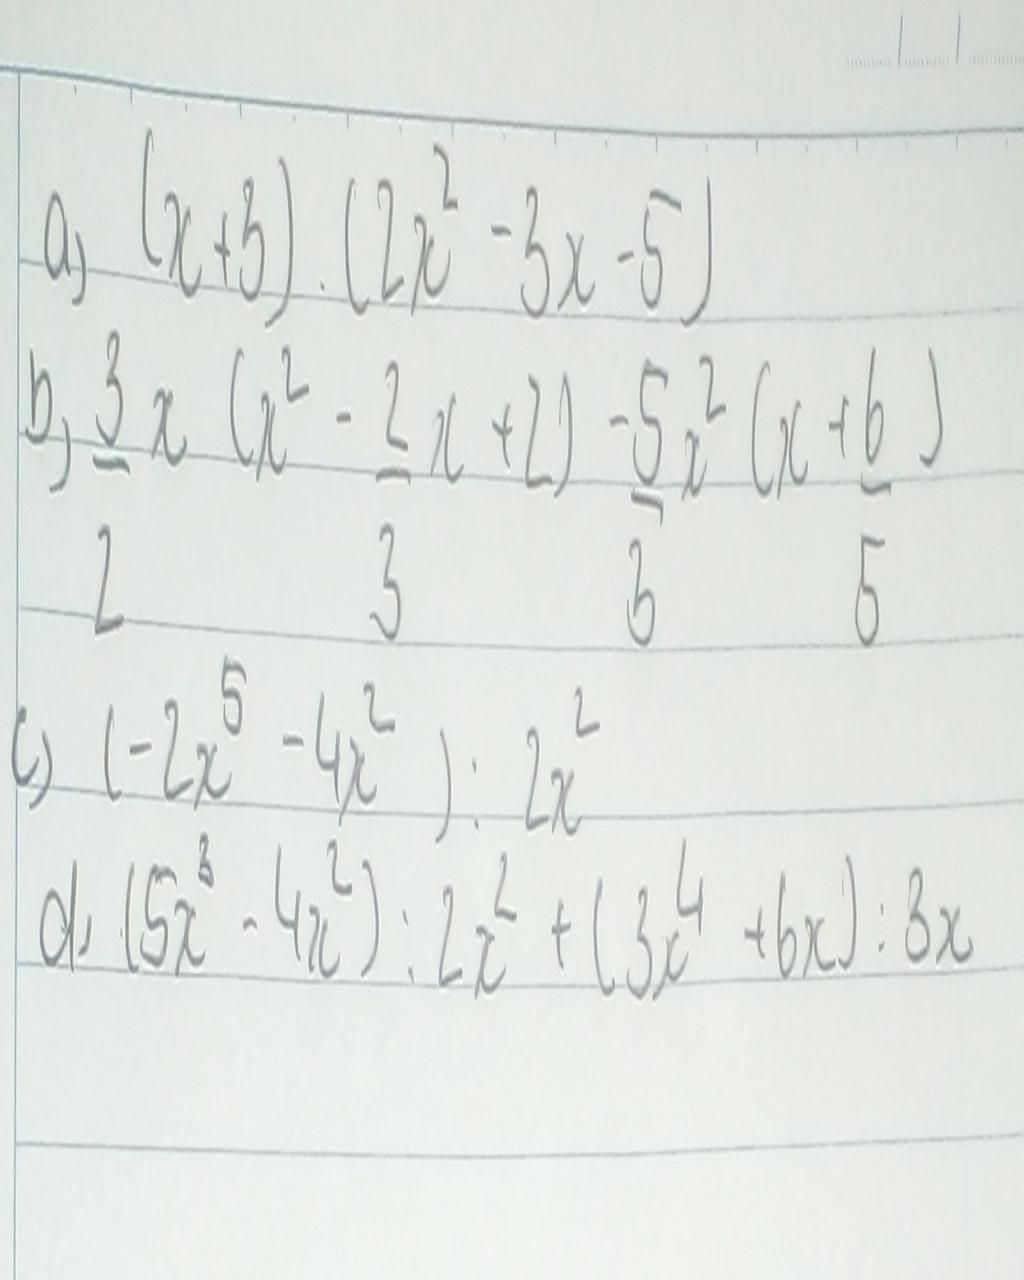 a, (x+3).(2x² -3x -5)
b, 3/2 x (x² - 2/3 x +2) -5/3 x² (x + 6/5)
c) (-2x⁵ -4x²) : 2x²
d, (5x³ -4x²) : 2x² + (3x⁴ +6x) : 3x